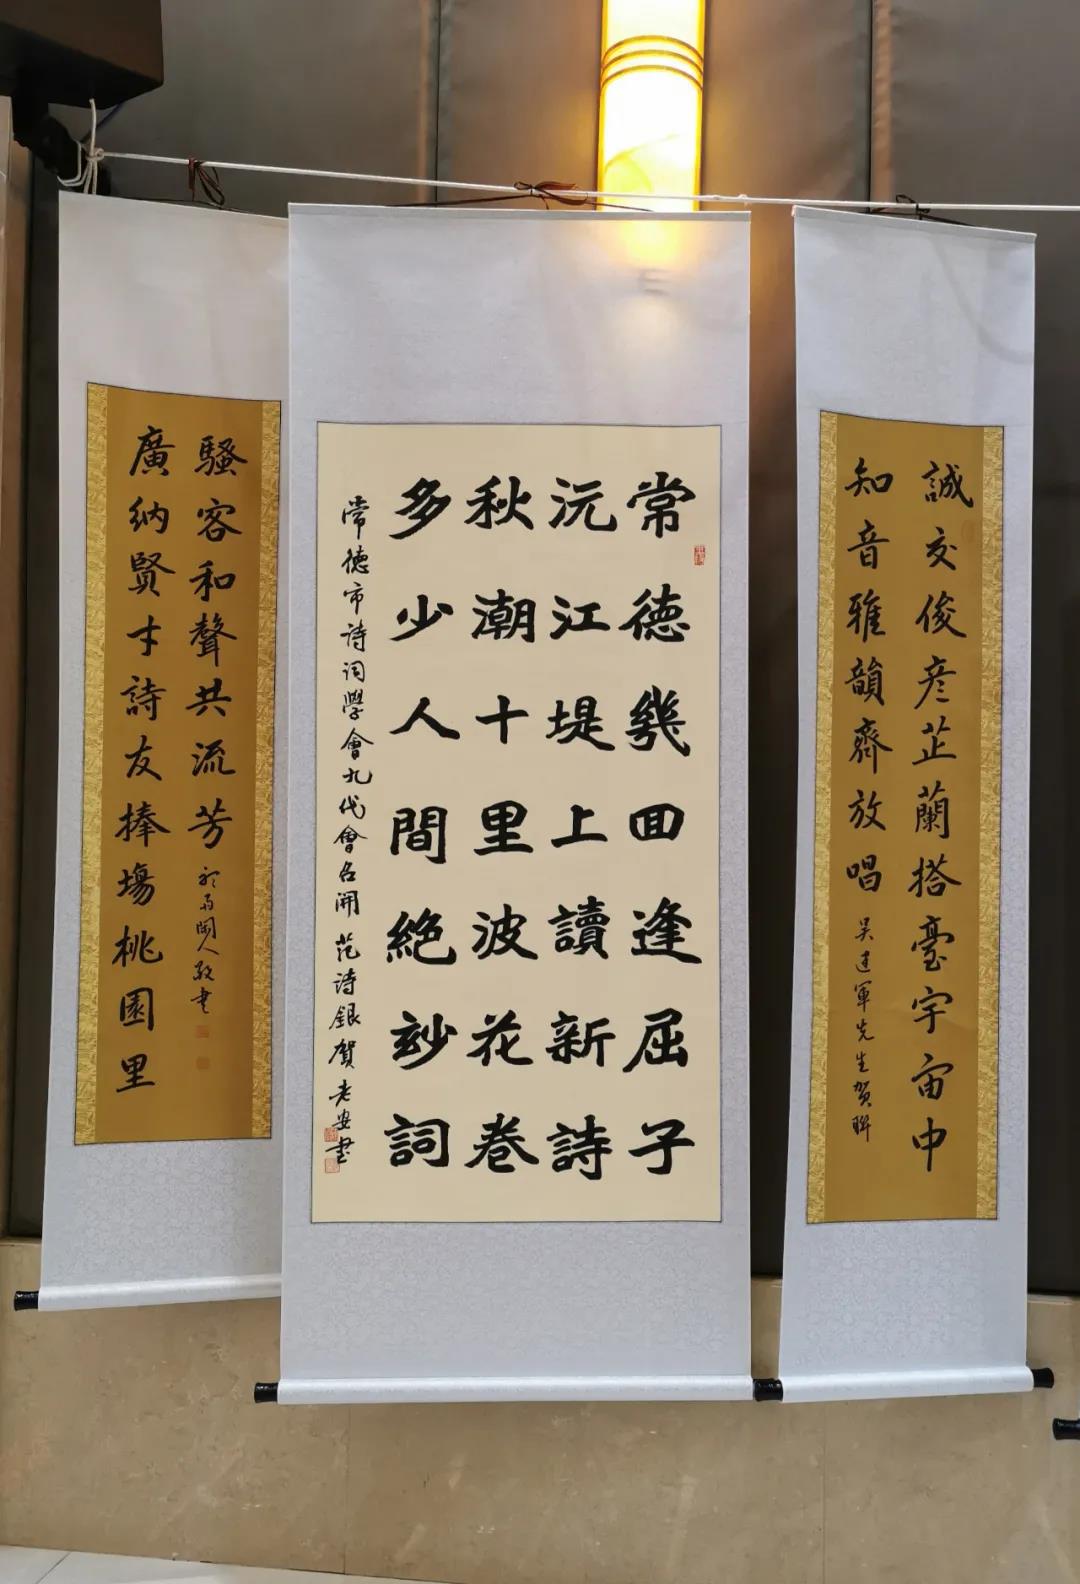 誠交俊彦芷蘭搭臺宇宙中
知音雅韻齊放唱
吴建軍先生賀聯
常德幾囬逢屈子
沅江堤上讀新詩
秋潮十里波花卷
多少人間絕玅詞
常德市诗词學會九代會召開 范诗銀賀 老安書
廣納賢才詩友捧場桃園里
騷客和聲共流芳
閒人敬書